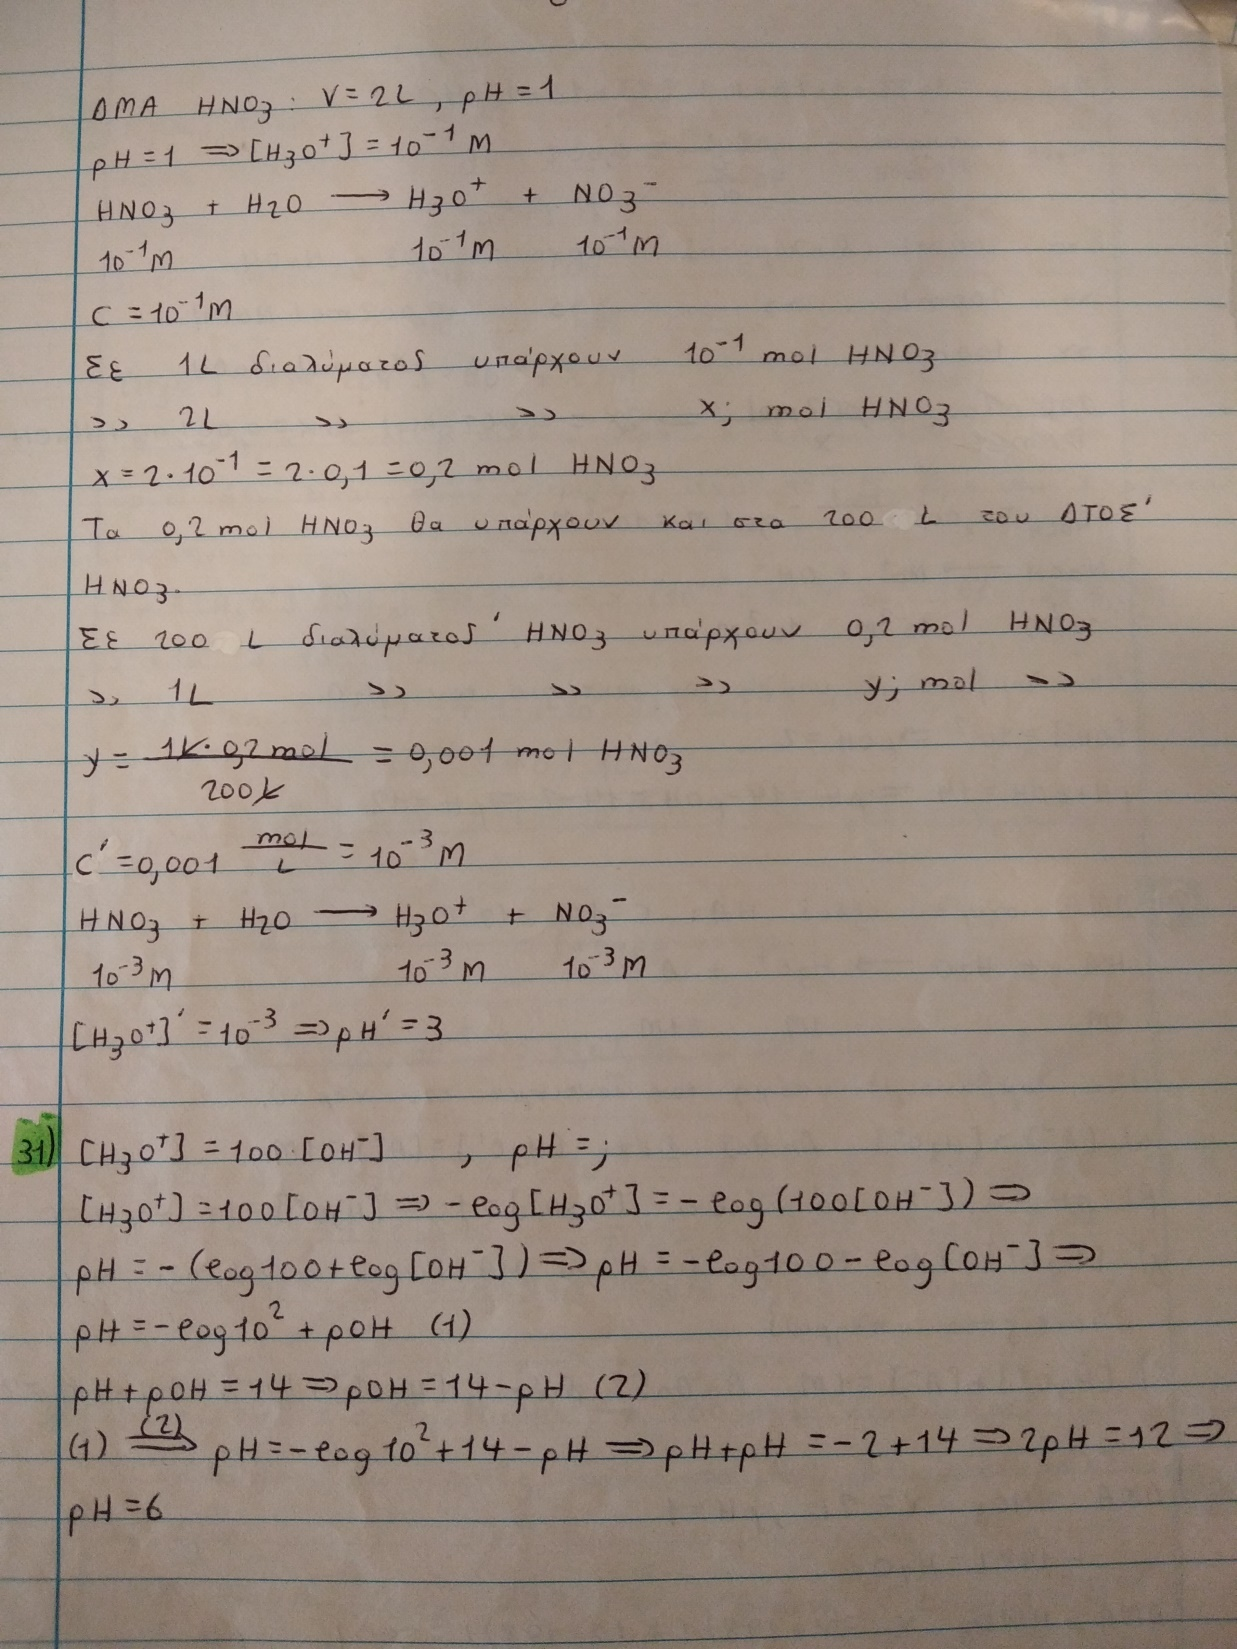 ΔΜΑ HNO3: V=2L, pH=1
pH=1 ⇒ [H3O⁺]=10⁻¹ M
HNO3 + H2O ⟶ H3O⁺ + NO3⁻
10⁻¹M 10⁻¹M 10⁻¹M
C=10⁻¹M
Σε 1L διαλύματος υπάρχουν 10⁻¹ mol HNO3
>> 2L >> >> x; mol HNO3
x=2·10⁻¹=2·0,1=0,2 mol HNO3
Τα 0,2 mol HNO3 θα υπάρχουν και στα 200 L του ΔΤΟΣ'
HNO3.
Σε 200 L διαλύματος' HNO3 υπάρχουν 0,2 mol HNO3
>> 1L >> >> >> y; mol >>
y = 1L·0,2mol / 200L = 0,001 mol HNO3
C'=0,001 mol/L = 10⁻³M
HNO3 + H2O ⟶ H3O⁺ + NO3⁻
10⁻³M 10⁻³M 10⁻³M
[H3O⁺]'=10⁻³ ⇒ pH'=3
31) [H3O⁺]=100·[OH⁻] , pH=;
[H3O⁺]=100[OH⁻] ⇒ -log[H3O⁺]=-log(100[OH⁻]) ⇒
pH=-(log100+log[OH⁻]) ⇒ pH=-log100-log[OH⁻] ⇒
pH=-log10²+pOH (1)
pH+pOH=14 ⇒ pOH=14-pH (2)
(1) (2)⇒ pH=-log10²+14-pH ⇒ pH+pH=-2+14 ⇒ 2pH=12 ⇒
pH=6